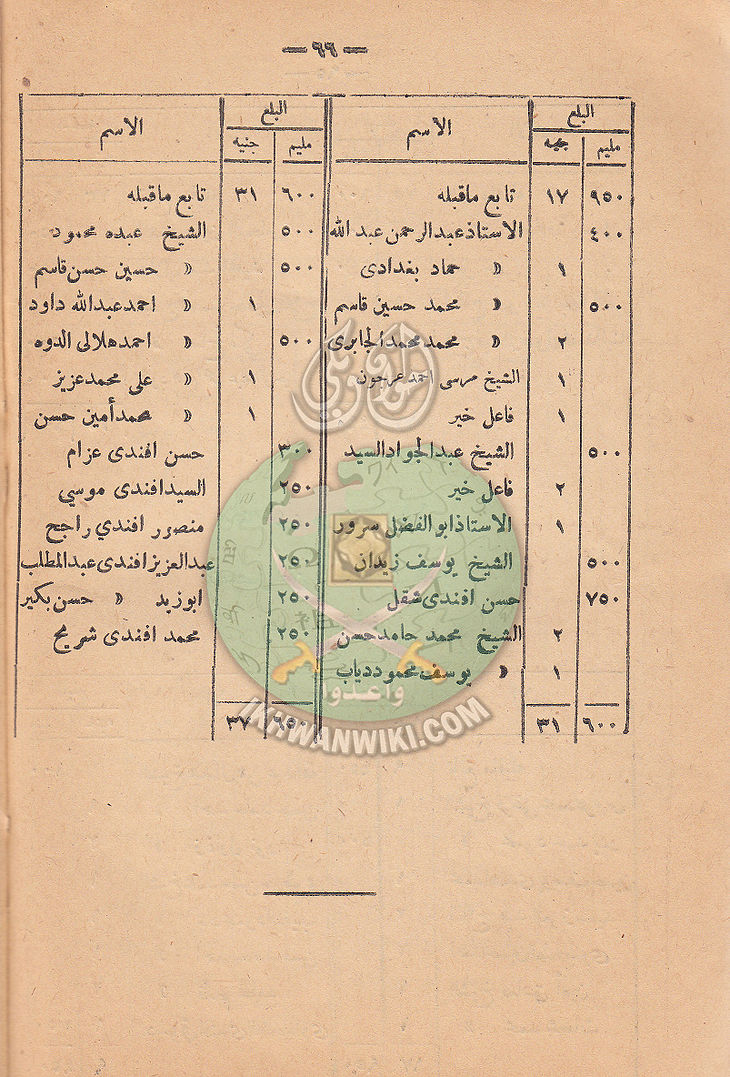 — ٩٩ —
المبلغ الاسم
مليم جنيه
٩٥٠ ١٧ تابع ماقبله
٤٠٠ الاستاذ عبد الرحمن عبد الله
١ » حماد بغدادى
٥٠٠ » محمد حسين قاسم
٢ » محمد محمد الجابرى
١ الشيخ مرسى احمد عرجون
١ فاعل خير
٥٠٠ الشيخ عبد الجواد السيد
٢ فاعل خير
١ الاستاذ ابو الفضل سرور
٥٠٠ الشيخ يوسف زيدان
٧٥٠ حسن افندى شقل
٢ الشيخ محمد حامد حسن
١ » يوسف محمود دياب
٦٠٠ ٣١
المبلغ الاسم
مليم جنيه
٦٠٠ ٣١ تابع ماقبله
٥٠٠ الشيخ عبده محمود
٥٠٠ » حسين حسن قاسم
١ » احمد عبد الله داود
٥٠٠ » احمد هلالى الدوه
١ » على محمد عزيز
١ » محمد أمين حسن
٣٠٠ حسن افندى عزام
٢٥٠ السيد افندى موسي
٢٥٠ منصور افندي راجح
٢٥٠ عبد العزيز افندى عبد المطلب
٢٥٠ ابوزيد » حسن بكير
٢٥٠ محمد افندى شريح
٦٥٠ ٣٧
وأعدوا
IKHWANWIKI.COM